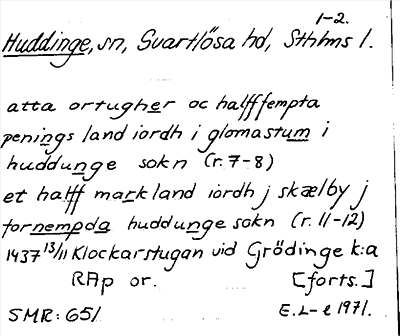 1-2.
Huddinge, sn, Svartlösa hd, Sthlms l.
atta ortugher oc halffempta
penings land iordh i glomastum i
huddunge sokn (r. 7-8)
et halff markland iordh j skælby j
fornempda huddunge sokn (r. 11-12)
1437 13/11 Klockarstugan vid Grödinge k:a
RAp or. [forts.]
SMR: 651 E.L-e 1971.